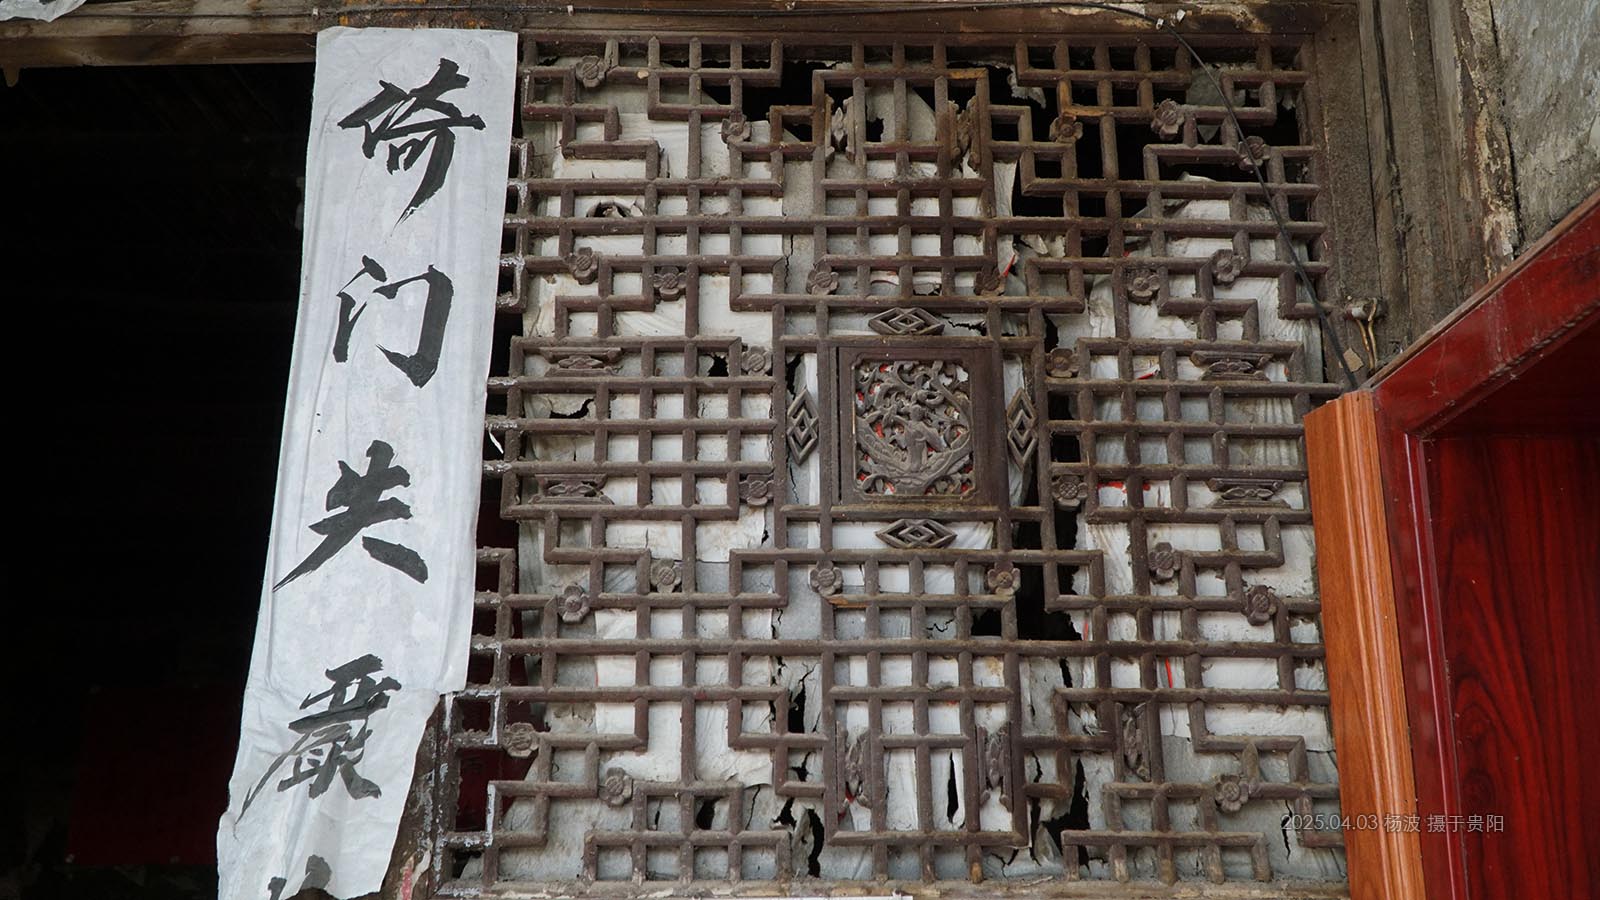 倚门失
2025.04.03 杨波 摄于贵阳